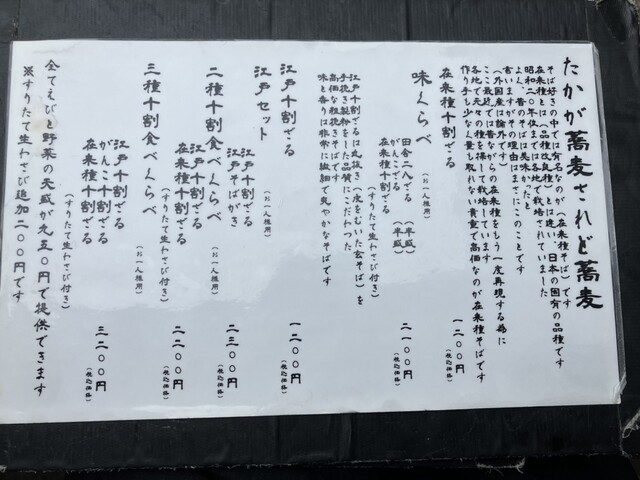 たかが蕎麦されど蕎麦
そば好きの中では有名なのが(在来種そば)です
在来種とは(品種改良種)とは違い日本の固有の品種です
昭和二〇年位まで各地で栽培されていました
よく、昔のそばは美味かったと
言いますがその理由はまさにこのことです
(外国産は論外です)
ここ最近では昔ながらの在来種をもう一度再現する為に
各地で元々の種を探して栽培しています
作り手も少なく量も取れない貴重で高価なのが在来種そばです
在来種十割ざる 一二〇〇円(税込価格)
味くらべ(お一人様用)
田舎二八ざる(半盛)
がんこ二八ざる(半盛)
在来種十割ざる
(すりたて生わさび付き) 二一〇〇円(税込価格)
江戸十割ざるは丸抜き(皮をむいた玄そば)を
手挽き製粉をした品質にこだわった
高価な粗挽きそばです
味と香りは非常に繊細で爽やかなそばです
江戸十割ざる 一二〇〇円(税込価格)
江戸セット(お一人様用)
江戸十割ざる
江戸そばがき 二三〇〇円(税込価格)
二種十割食べくらべ(お一人様用)
江戸十割ざる
在来種十割ざる
(すりたて生わさび付き) 二二〇〇円(税込価格)
三種十割食べくらべ(お一人様用)
江戸十割ざる
がんこ十割ざる
在来種十割ざる
(すりたて生わさび付き) 三二〇〇円(税込価格)
全てえびと野菜の天盛が九五〇円で提供できます
※すりたて生わさび追加二〇〇円です